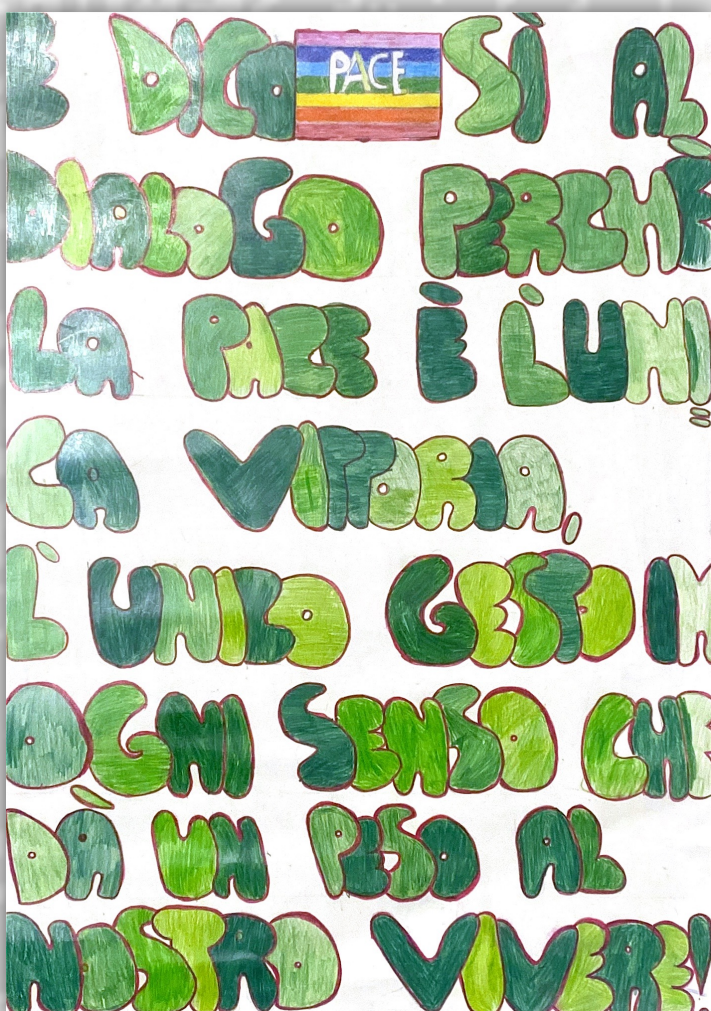 E DICO PACE SÌ AL
DIALOGO PERCHÈ
LA PACE È L'UNI=
CA VITTORIA,
L'UNICO GESTO IN
OGNI SENSO CHE
DÀ UN PESO AL
NOSTRO VIVERE!